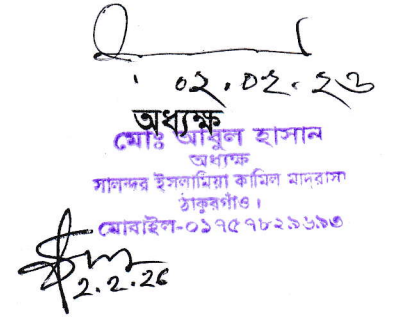 ০২.০২.২৬
অধ্যক্ষ
মোঃ আবুল হাসান
অধ্যক্ষ
সালন্দর ইসলামিয়া কামিল মাদ্রাসা
ঠাকুরগাঁও।
মোবাইল-০১৭৫৭৮২৯৬৯৩
2.2.26